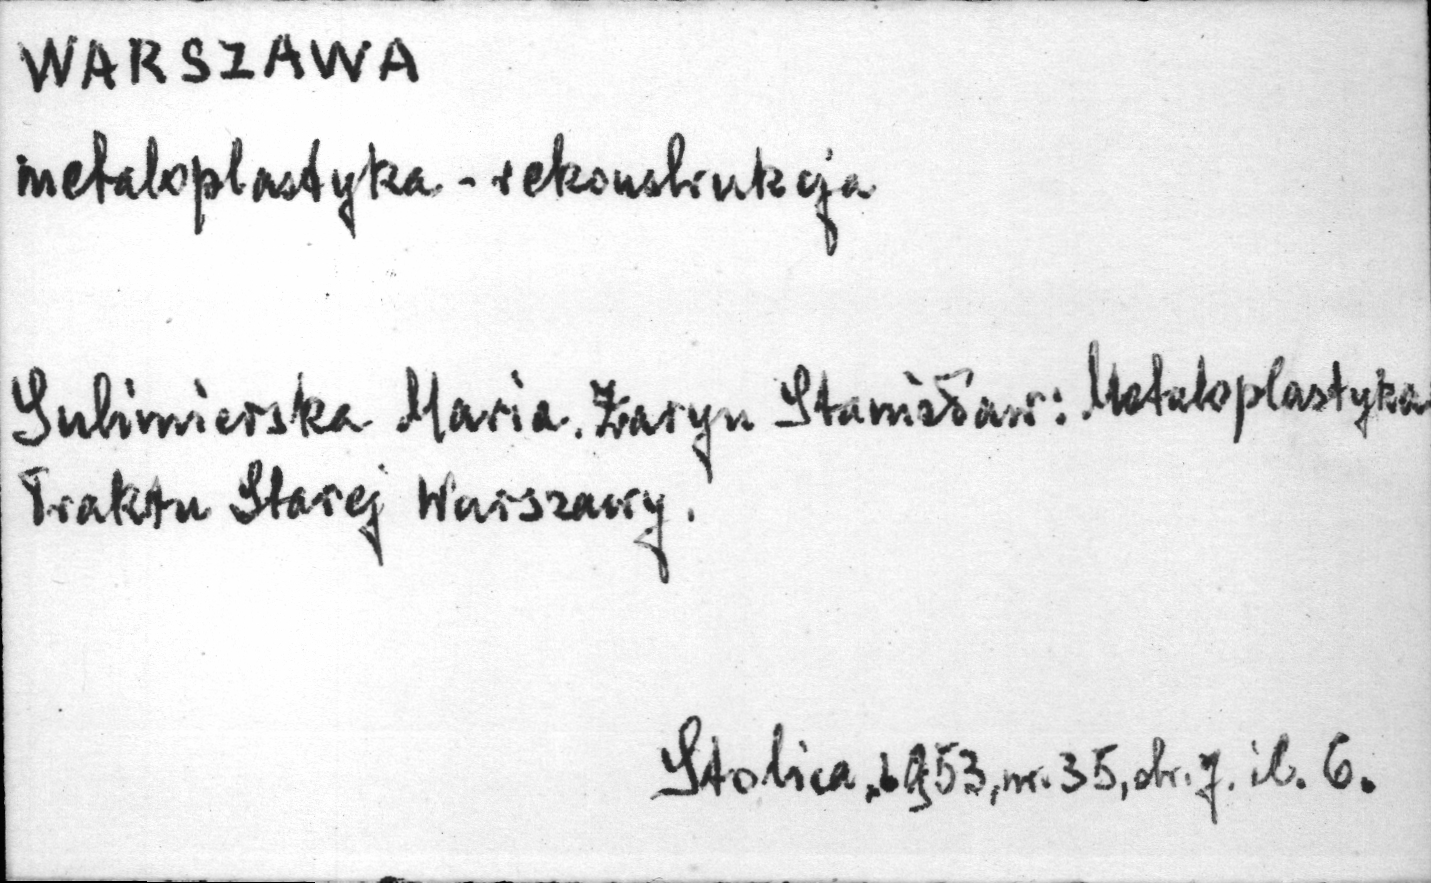 WARSZAWA
metaloplastyka - rekonstrukcja
Sulimierska Maria. Żaryn Stanisław: Metaloplastyka
Traktu Starej Warszawy.
Stolica, 1953, nr. 35, str. 7. il. 6.